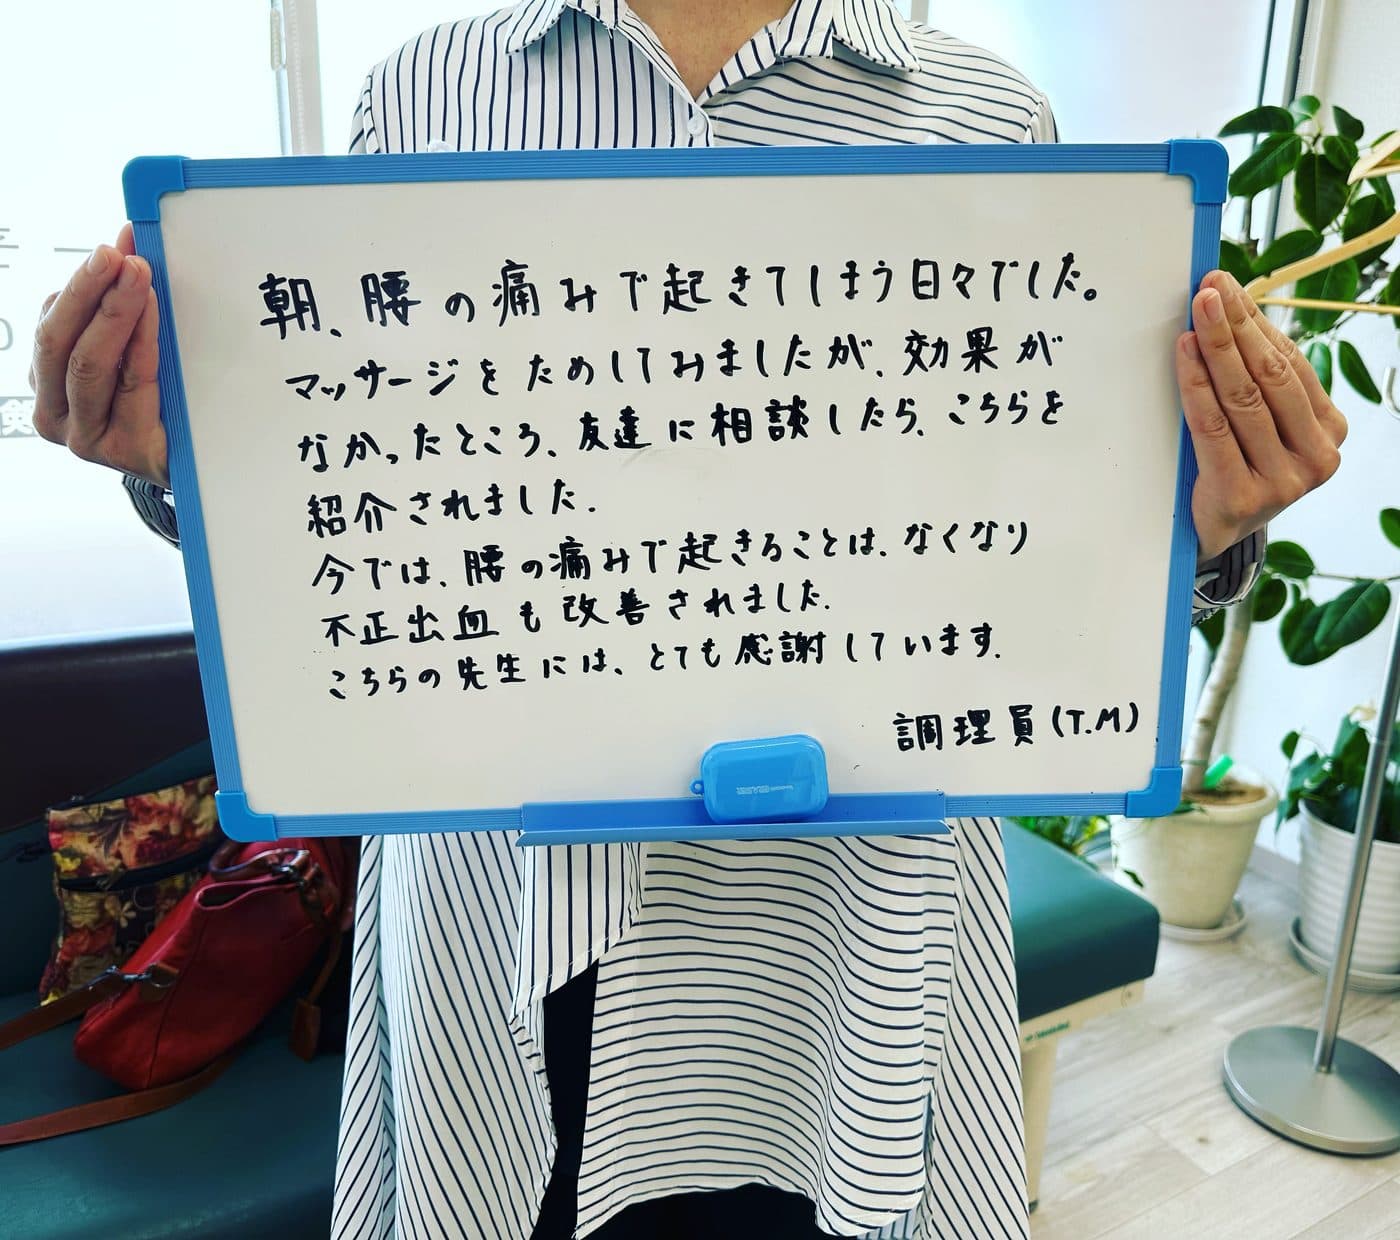 朝、腰の痛みで起きてしまう日々でした。
マッサージをためしてみましたが、効果が
なかったところ、友達に相談したら、こちらを
紹介されました.
今では、腰の痛みで起きることは、なくなり
不正出血も改善されました.
こちらの先生には、とても感謝しています.
調理員(T.M)